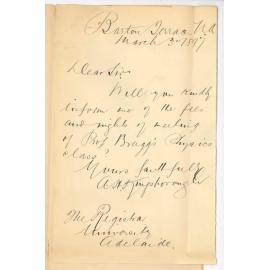 Barton Terrace, N.A.
March 3rd 1897
Dear Sir,
Will you kindly
inform me of the fees
and nights of meeting
of Prof Bragg's Physics
class?
Yours faithfully
A. H. Kingsborough
The Registrar
University
Adelaide.